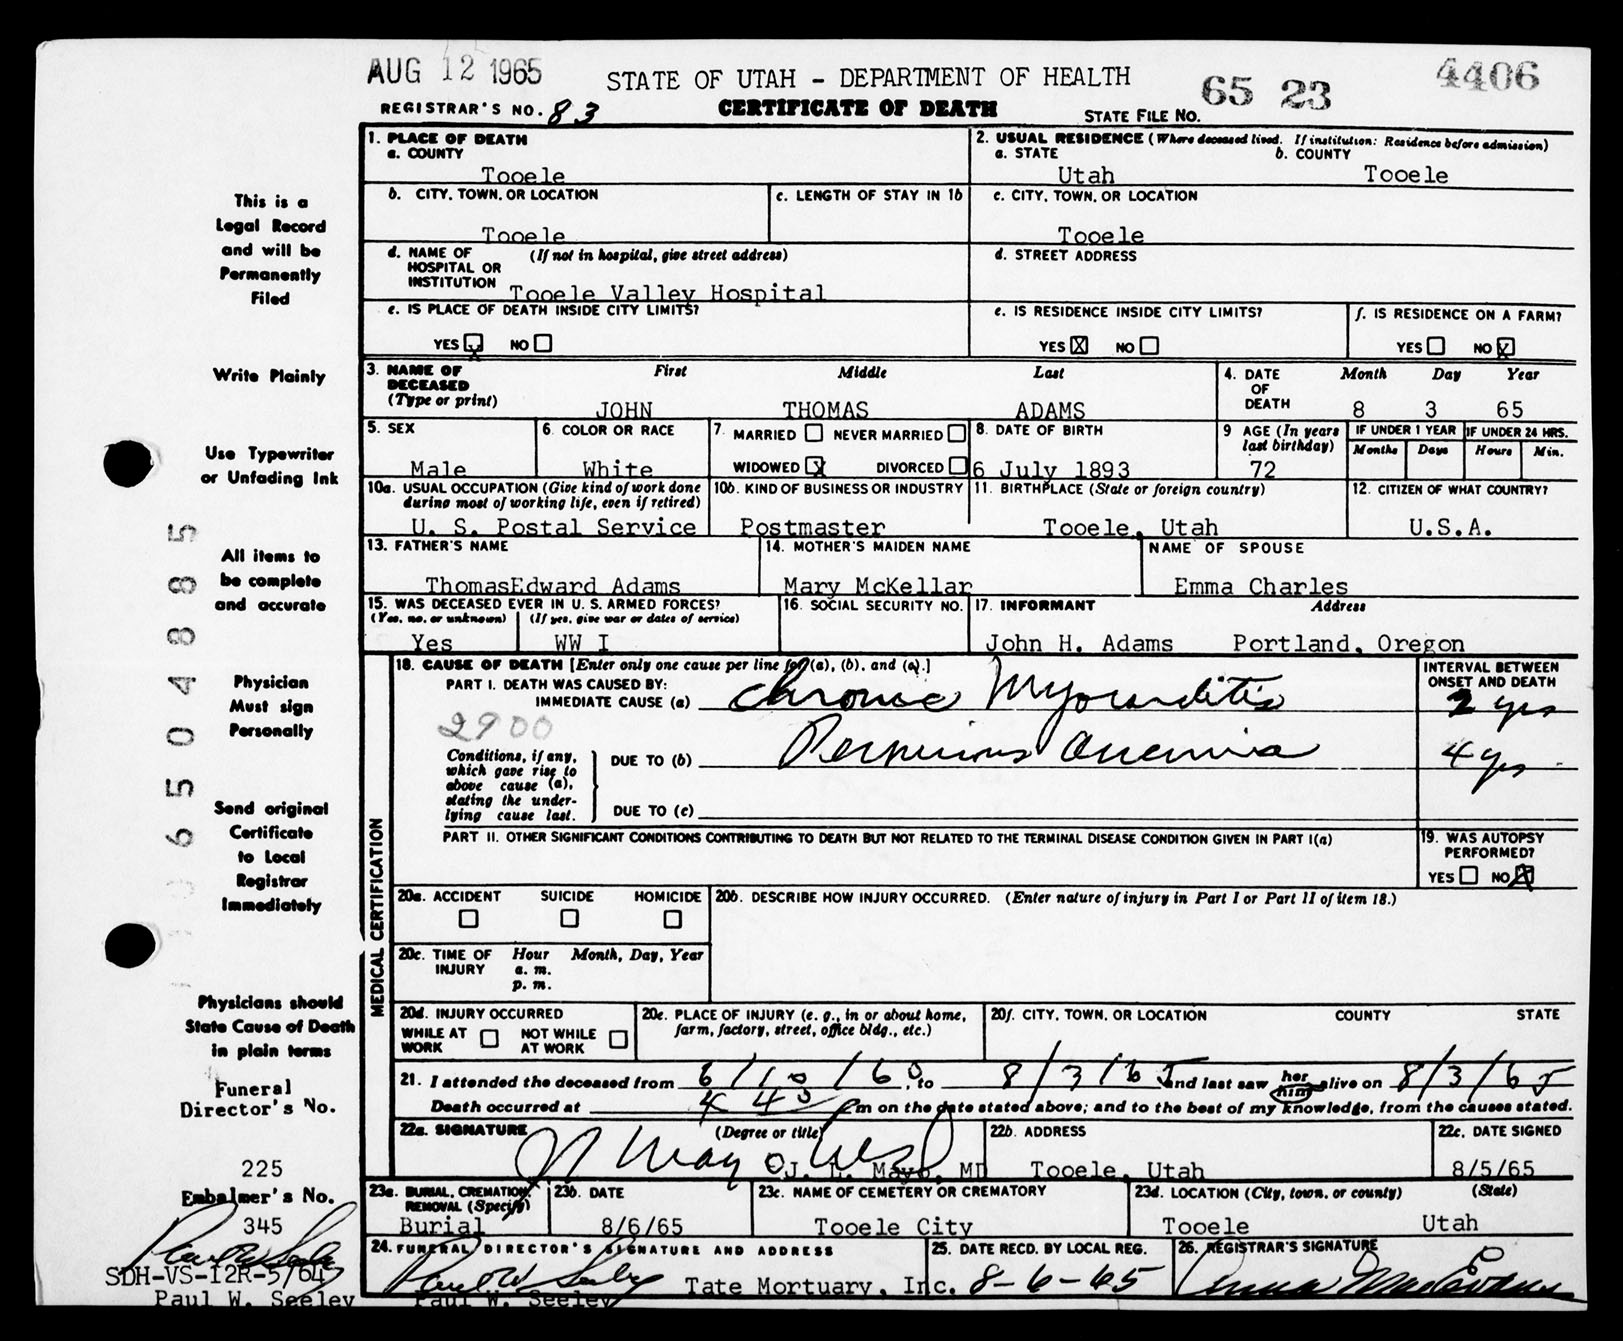 AUG 12 1965
STATE OF UTAH - DEPARTMENT OF HEALTH
65 23
4406
REGISTRAR'S NO. 83
CERTIFICATE OF DEATH
STATE FILE NO.
This is a
Legal Record
and will be
Permanently
Filed
Write Plainly
Use Typewriter
or Unfading Ink
All items to
be complete
and accurate
Physician
Must sign
Personally
Send original
Certificate
to Local
Registrar
Immediately
Physicians should
State Cause of Death
in plain terms
Funeral
Director's No.
225
Embalmer's No.
345
Paul W. Seeley
SDH-VS-12R-5/64
Paul W. Seeley
65 04885
1. PLACE OF DEATH
a. COUNTY
Tooele
2. USUAL RESIDENCE (Where deceased lived. If institution: Residence before admission)
a. STATE b. COUNTY
Utah Tooele
b. CITY, TOWN, OR LOCATION
Tooele
c. LENGTH OF STAY IN 1b
c. CITY, TOWN, OR LOCATION
Tooele
d. NAME OF (If not in hospital, give street address)
HOSPITAL OR
INSTITUTION Tooele Valley Hospital
d. STREET ADDRESS
e. IS PLACE OF DEATH INSIDE CITY LIMITS?
YES X NO
e. IS RESIDENCE INSIDE CITY LIMITS?
YES X NO
f. IS RESIDENCE ON A FARM?
YES NO X
3. NAME OF First Middle Last
DECEASED
(Type or print)
JOHN THOMAS ADAMS
4. DATE Month Day Year
OF
DEATH 8 3 65
5. SEX
Male
6. COLOR OR RACE
White
7. MARRIED NEVER MARRIED
WIDOWED X DIVORCED
8. DATE OF BIRTH
6 July 1893
9 AGE (In years
last birthday)
72
IF UNDER 1 YEAR IF UNDER 24 HRS.
Months Days Hours Min.
10a. USUAL OCCUPATION (Give kind of work done
during most of working life, even if retired)
U. S. Postal Service
10b. KIND OF BUSINESS OR INDUSTRY
Postmaster
11. BIRTHPLACE (State or foreign country)
Tooele, Utah
12. CITIZEN OF WHAT COUNTRY?
U.S.A.
13. FATHER'S NAME
ThomasEdward Adams
14. MOTHER'S MAIDEN NAME
Mary McKellar
NAME OF SPOUSE
Emma Charles
15. WAS DECEASED EVER IN U. S. ARMED FORCES?
(Yes, no, or unknown) (If yes, give war or dates of service)
Yes WW I
16. SOCIAL SECURITY NO.
17. INFORMANT Address
John H. Adams Portland, Oregon
MEDICAL CERTIFICATION
18. CAUSE OF DEATH [Enter only one cause per line for (a), (b), and (c).]
PART I. DEATH WAS CAUSED BY:
IMMEDIATE CAUSE (a) Chronic Myocarditis
INTERVAL BETWEEN
ONSET AND DEATH
2 yrs
2900
Conditions, if any,
which gave rise to
above cause (a),
stating the under-
lying cause last.
DUE TO (b) Pernicious anemia
4 yrs
DUE TO (c)
PART II. OTHER SIGNIFICANT CONDITIONS CONTRIBUTING TO DEATH BUT NOT RELATED TO THE TERMINAL DISEASE CONDITION GIVEN IN PART I(a)
19. WAS AUTOPSY
PERFORMED?
YES NO X
20a. ACCIDENT SUICIDE HOMICIDE
20b. DESCRIBE HOW INJURY OCCURRED. (Enter nature of injury in Part I or Part II of item 18.)
20c. TIME OF Hour Month, Day, Year
INJURY a. m.
p. m.
20d. INJURY OCCURRED
WHILE AT NOT WHILE
WORK AT WORK
20e. PLACE OF INJURY (e. g., in or about home,
farm, factory, street, office bldg., etc.)
20f. CITY, TOWN, OR LOCATION COUNTY STATE
21. I attended the deceased from 6/10/60, to 8/3/65 and last saw her him alive on 8/3/65
Death occurred at 4 40 m on the date stated above; and to the best of my knowledge, from the causes stated.
22a. SIGNATURE (Degree or title)
J. L. Mayo, MD
22b. ADDRESS
Tooele, Utah
22c. DATE SIGNED
8/5/65
23a. BURIAL, CREMATION,
REMOVAL (Specify)
Burial
23b. DATE
8/6/65
23c. NAME OF CEMETERY OR CREMATORY
Tooele City
23d. LOCATION (City, town, or county) (State)
Tooele Utah
24. FUNERAL DIRECTOR'S SIGNATURE AND ADDRESS
Paul W Seeley Tate Mortuary, Inc.
Paul W. Seeley
25. DATE RECD. BY LOCAL REG.
8-6-65
26. REGISTRAR'S SIGNATURE